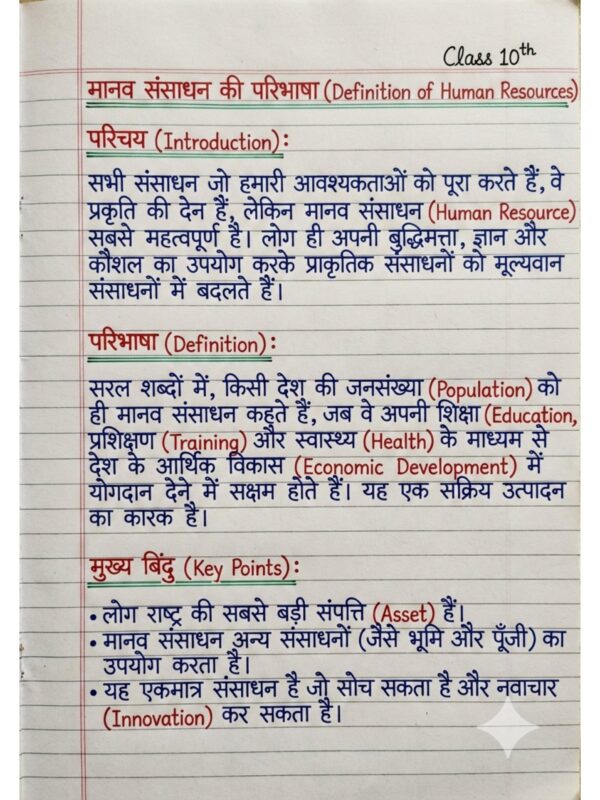 Class 10th
मानव संसाधन की परिभाषा (Definition of Human Resources)
परिचय (Introduction):
सभी संसाधन जो हमारी आवश्यकताओं को पूरा करते हैं, वे
प्रकृति की देन हैं, लेकिन मानव संसाधन (Human Resource)
सबसे महत्वपूर्ण है। लोग ही अपनी बुद्धिमत्ता, ज्ञान और
कौशल का उपयोग करके प्राकृतिक संसाधनों को मूल्यवान
संसाधनों में बदलते हैं।
परिभाषा (Definition):
सरल शब्दों में, किसी देश की जनसंख्या (Population) को
ही मानव संसाधन कहते हैं, जब वे अपनी शिक्षा (Education,
प्रशिक्षण (Training) और स्वास्थ्य (Health) के माध्यम से
देश के आर्थिक विकास (Economic Development) में
योगदान देने में सक्षम होते हैं। यह एक सक्रिय उत्पादन
का कारक है।
मुख्य बिंदु (Key Points):
• लोग राष्ट्र की सबसे बड़ी संपत्ति (Asset) हैं।
• मानव संसाधन अन्य संसाधनों (जैसे भूमि और पूँजी) का
उपयोग करता है।
• यह एकमात्र संसाधन है जो सोच सकता है और नवाचार
(Innovation) कर सकता है।